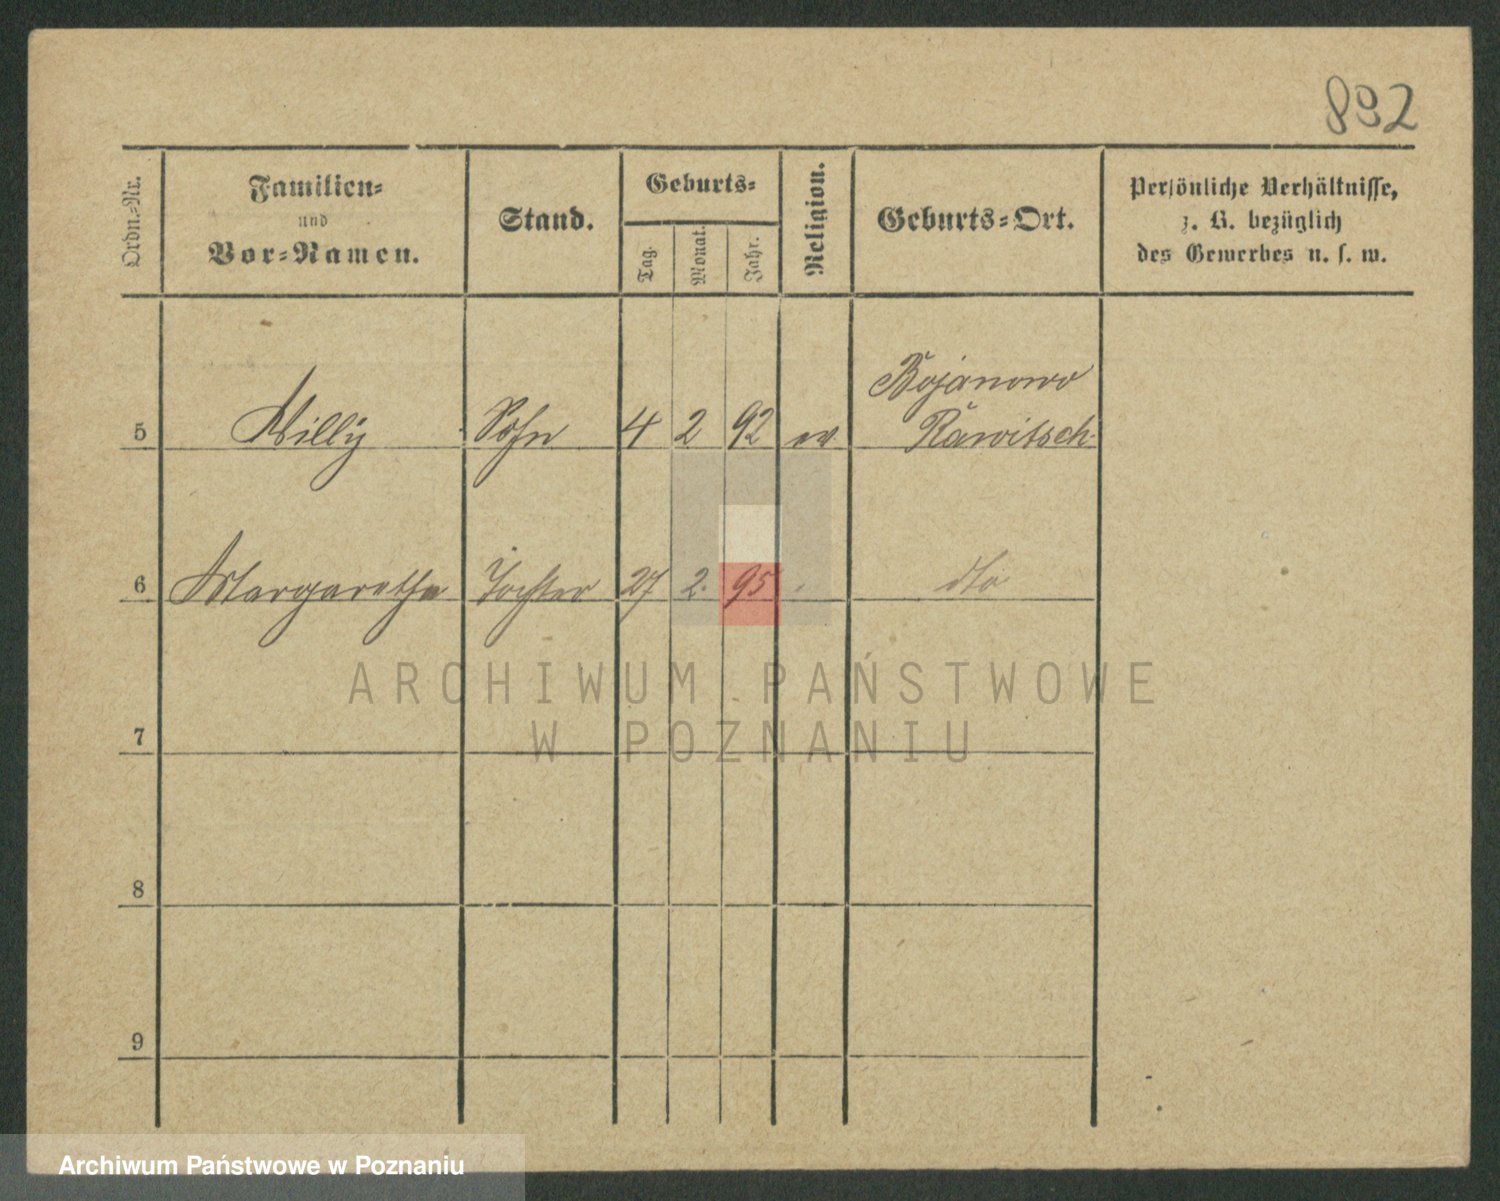 892
Ordn.-Nr.
Familien-
und
Vor-Namen.
Stand.
Geburts-
Tag.
Monat.
Jahr.
Religion.
Geburts-Ort.
Persönliche Verhältnisse,
z. B. bezüglich
des Gewerbes u. s. w.
Bojanowo
5 Willy Sohn 4 2 92 ev Rawitsch
6 Margarethe Tochter 27 2. 95 - dto
ARCHIWUM PAŃSTWOWE
W POZNANIU
7
8
9
Archiwum Państwowe w Poznaniu